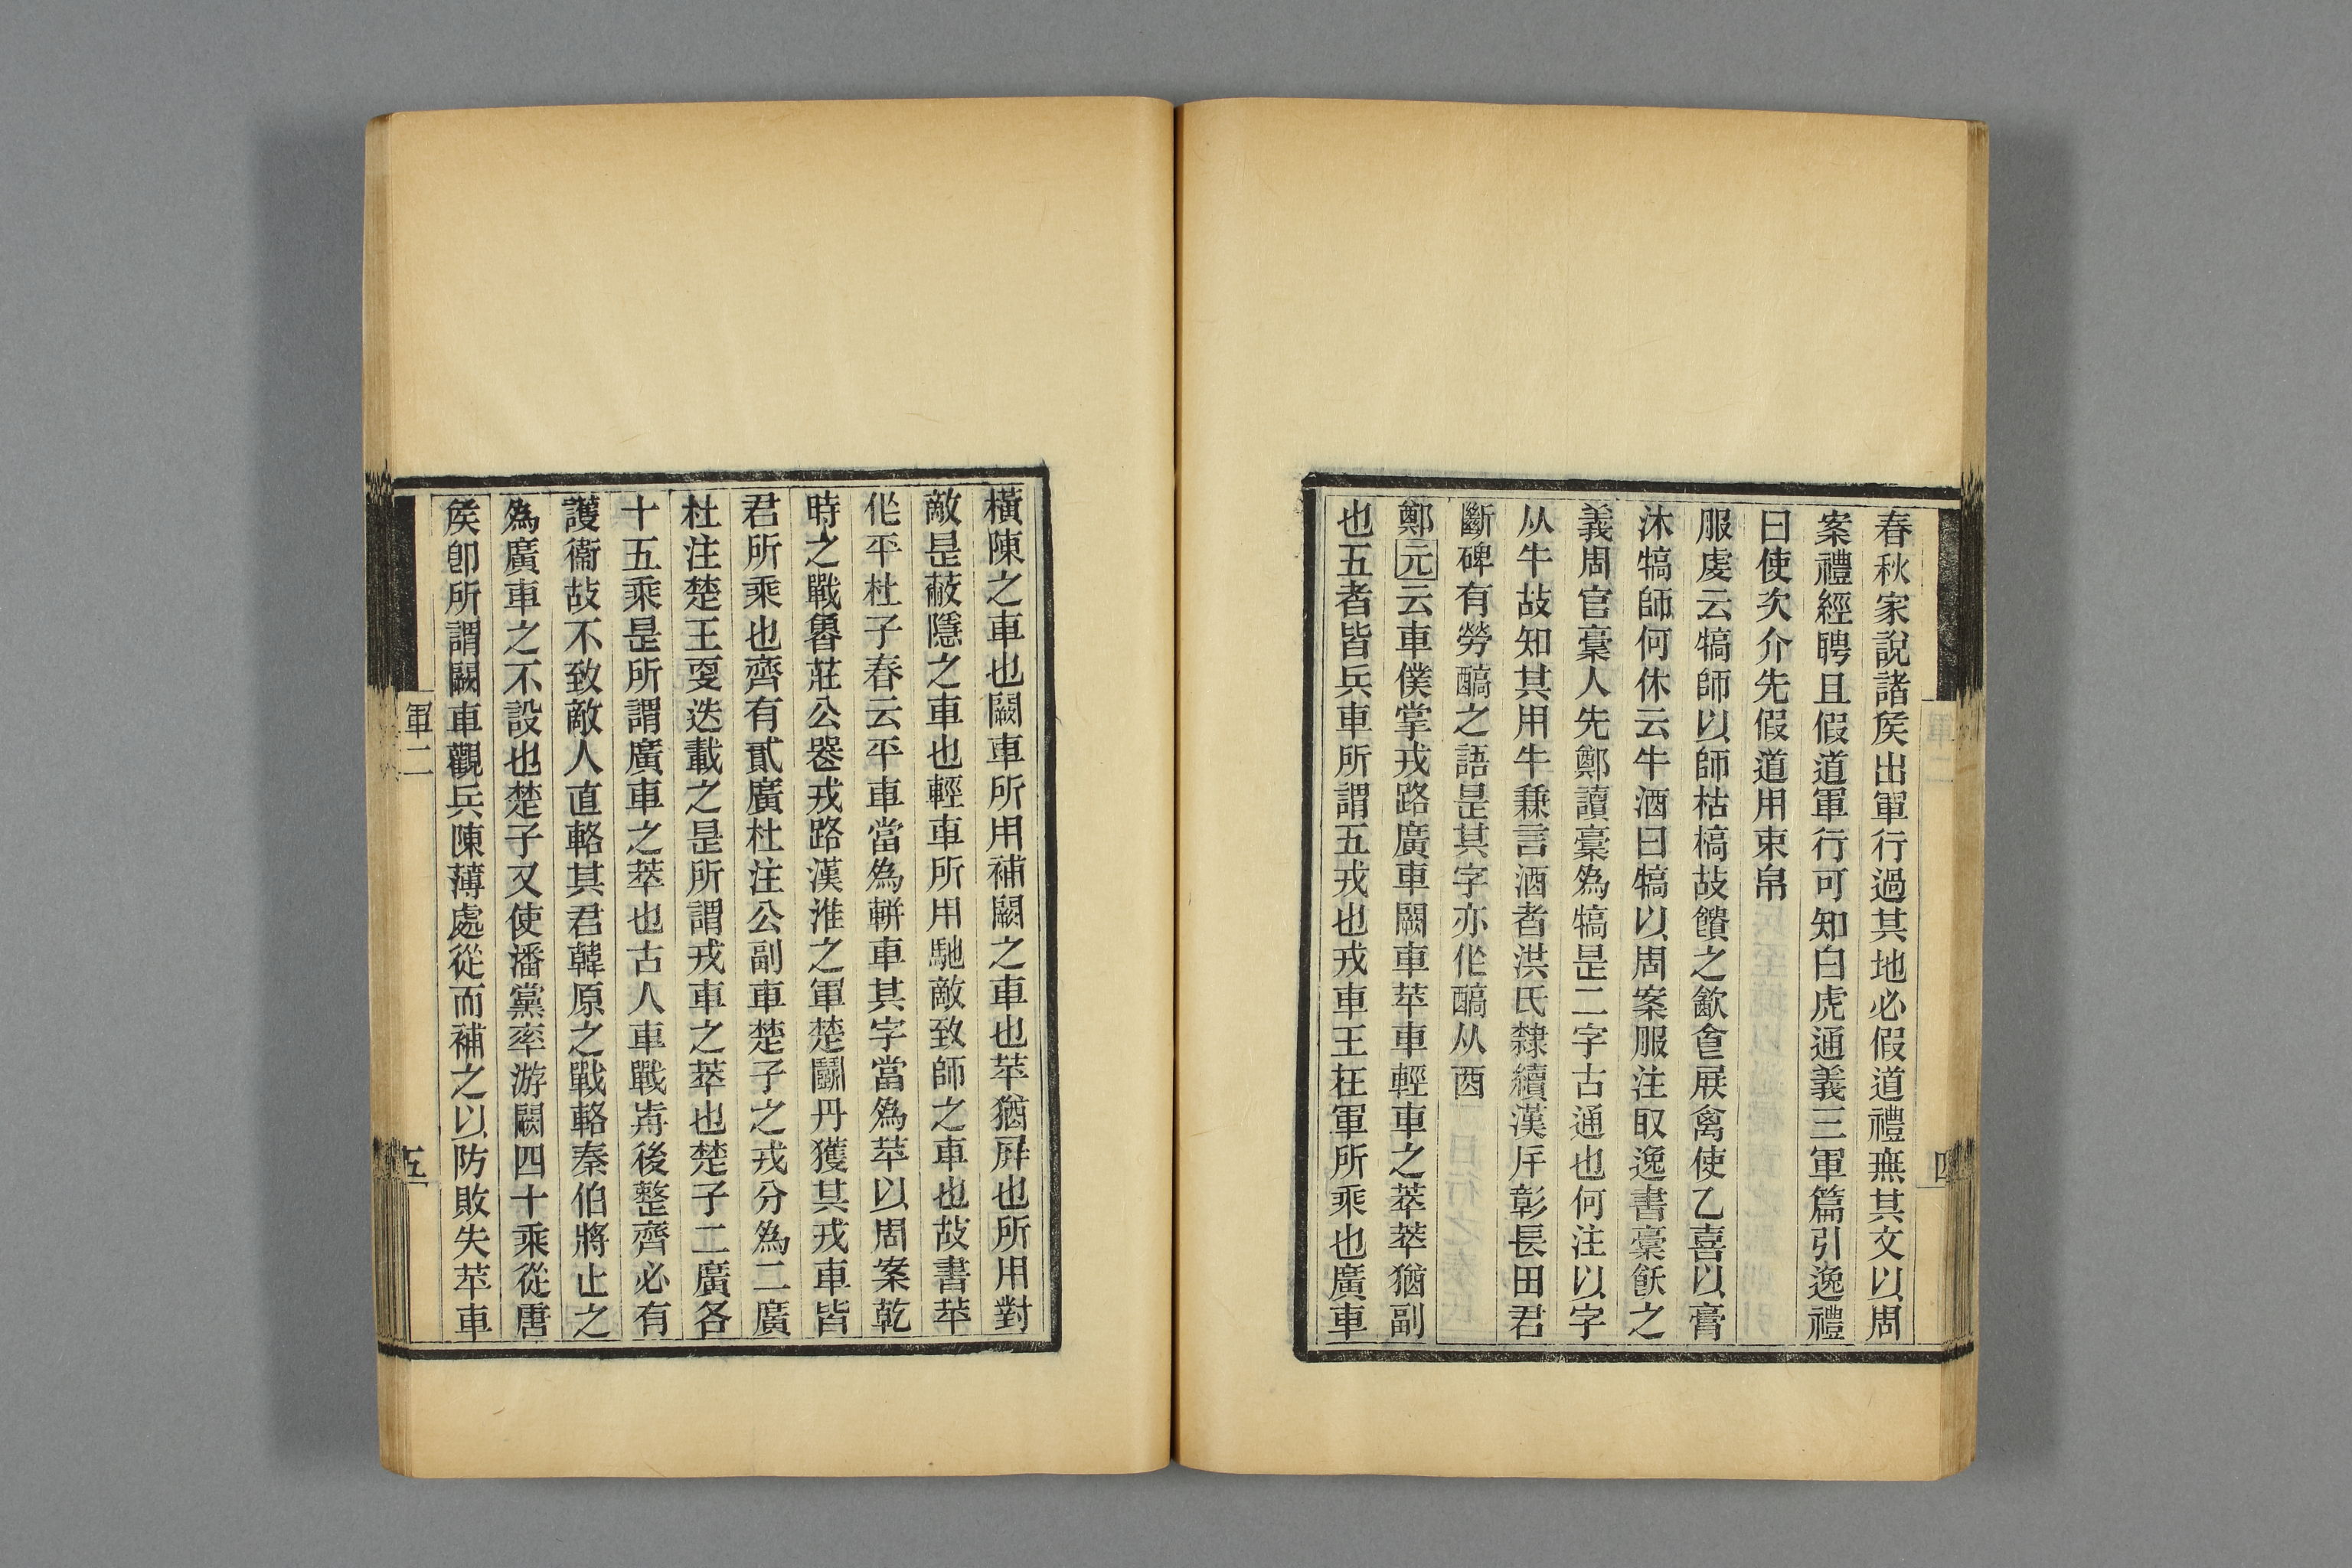 春秋家說諸矦出軍行過其地必假道禮無其文以周
案禮經聘且假道軍行可知白虎通義三軍篇引逸禮
曰使次介先假道用束帛
服虔云犒師以師枯槁故饋之飲食展禽使乙喜以膏
沐犒師何休云牛酒曰犒以周案服注取逸書稾飫之
義周官稾人先鄭讀稾為犒是二字古通也何注以字
从牛故知其用牛兼言酒者洪氏隸續漢斥彰長田君
斷碑有勞醕之語是其字亦作醕从酉
鄭元云車僕掌戎路廣車闕車苹車輕車之萃萃猶副
也五者皆兵車所謂五戎也戎車王在軍所乘也廣車
軍二
四
橫陳之車也闕車所用補闕之車也苹猶屛也所用對
敵是蔽隱之車也輕車所用馳敵致師之車也故書苹
作平杜子春云平車當為軿車其字當為苹以周案乾
時之戰魯莊公喪戎路漢淮之軍楚鬭丹獲其戎車皆
君所乘也齊有貳廣杜注公副車楚子之戎分為二廣
杜注楚王更迭載之是所謂戎車之萃也楚子二廣各
十五乘是所謂廣車之萃也古人車戰歬後整齊必有
護衞故不致敵人直輅其君韓原之戰輅秦伯將止之
為廣車之不設也楚子又使潘黨率游闕四十乘從唐
矦卽所謂闕車觀兵陳薄處從而補之以防敗失苹車
軍二
五